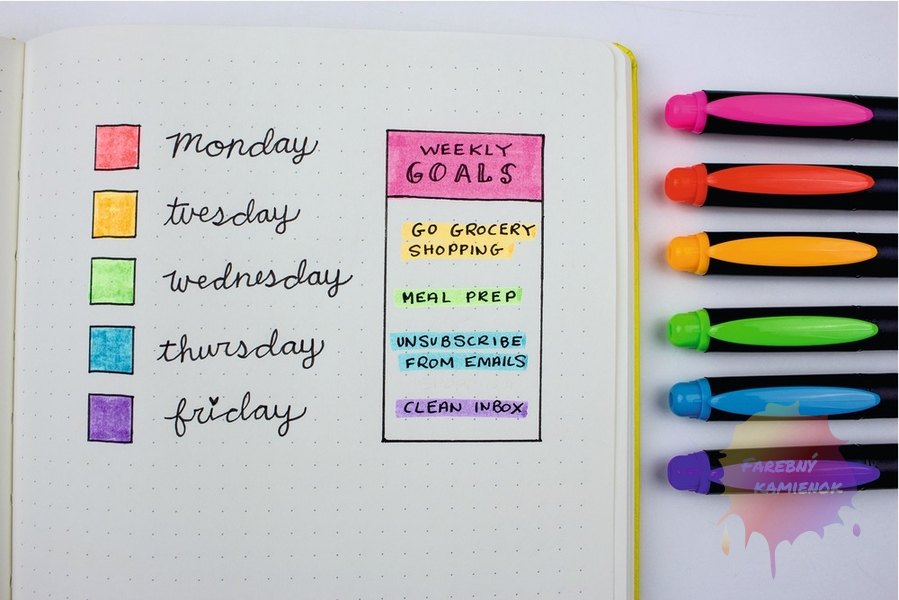 monday
tuesday
wednesday
thursday
friday
WEEKLY
GOALS
GO GROCERY
SHOPPING
MEAL PREP
UNSUBSCRIBE
FROM EMAILS
CLEAN INBOX
FAREBNÝ
KAMIENOK